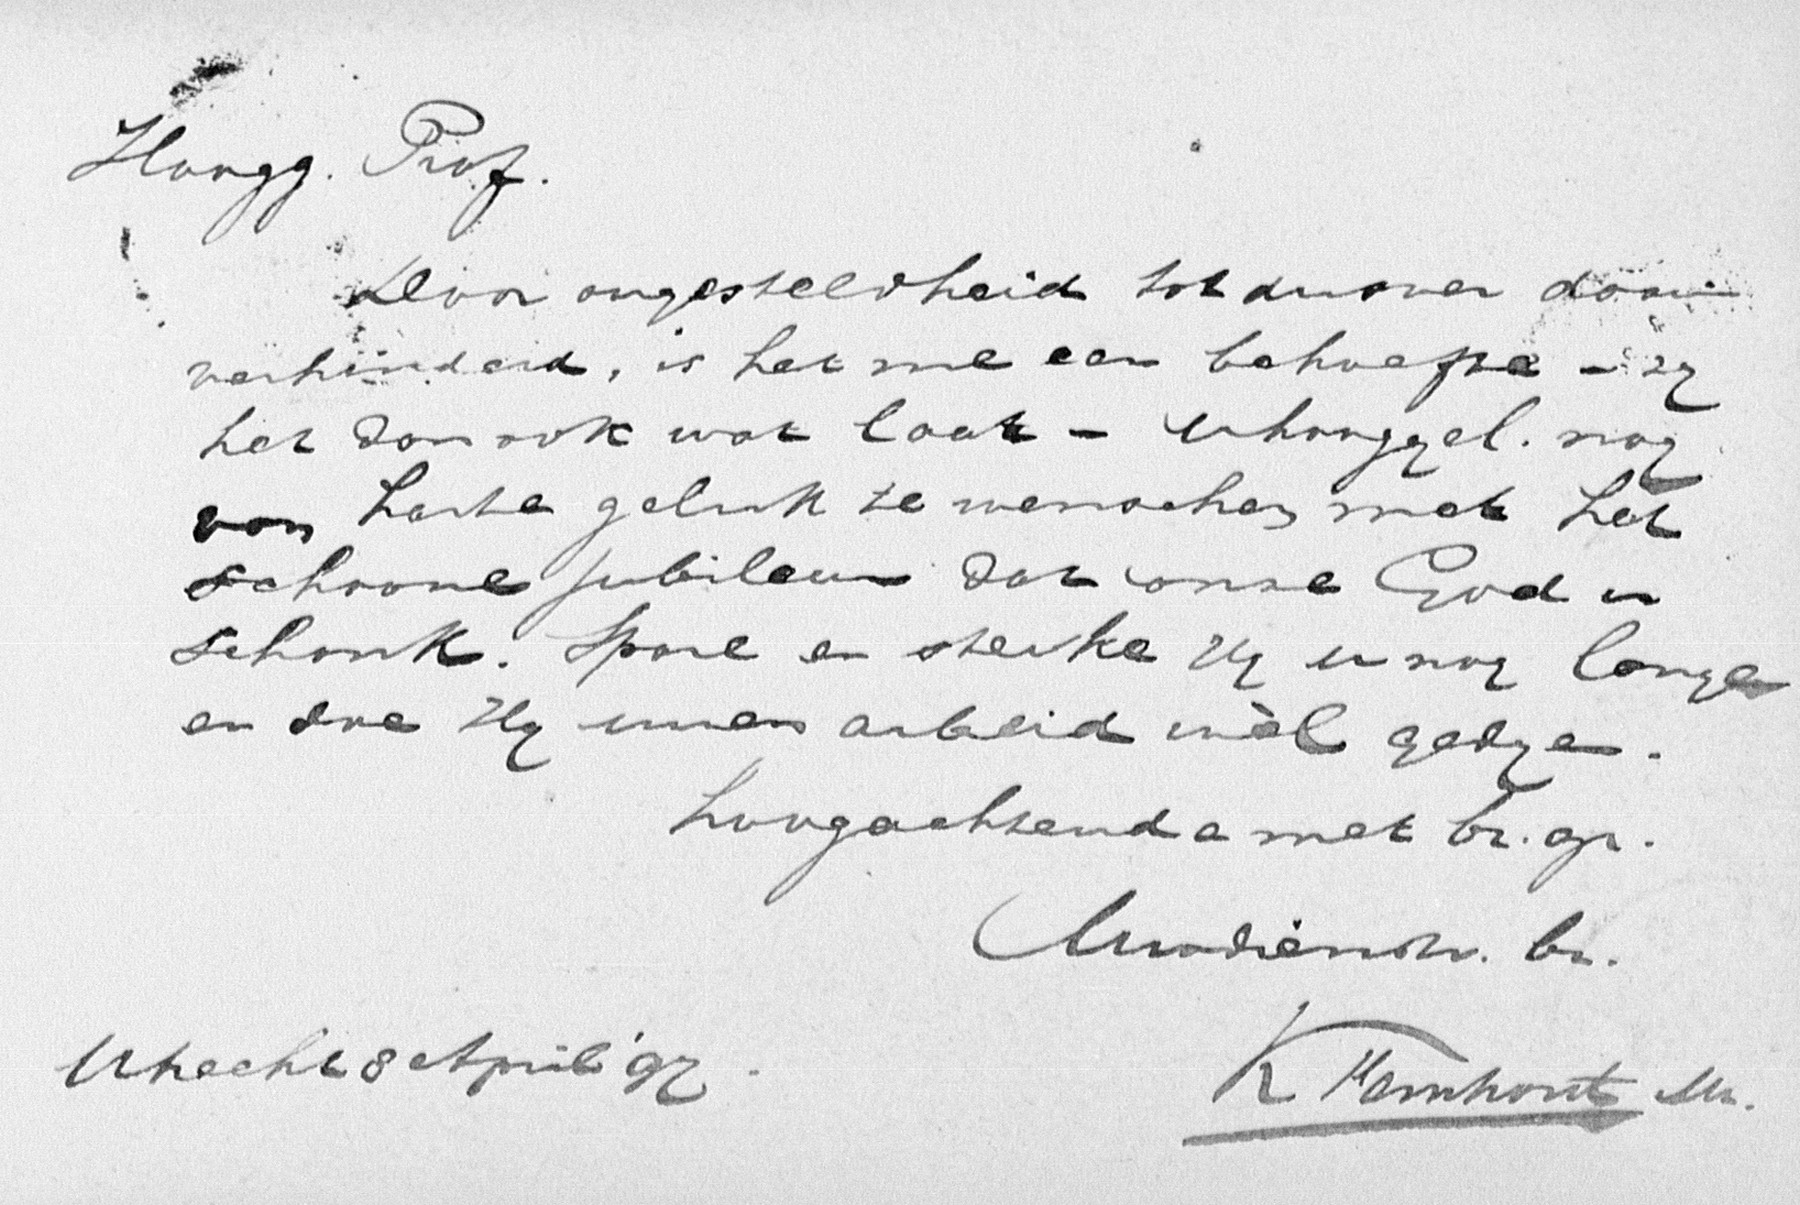 Hoogg. Prof.
Door ongesteldheid tot dusver daarin
verhinderd, is het me een behoefte – zij
het dan ook wat laat – U hooggel. nog
van harte geluk te wenschen met het
schoone jubileum dat onze God u
schonk. Spare en sterke Hij u nog lange
en doe Hij uwen arbeid wèl gedijen.
hoogachtend a met br. gr.
Uw dienstw. br.
Utrecht 8 April '97.
K Fernhout